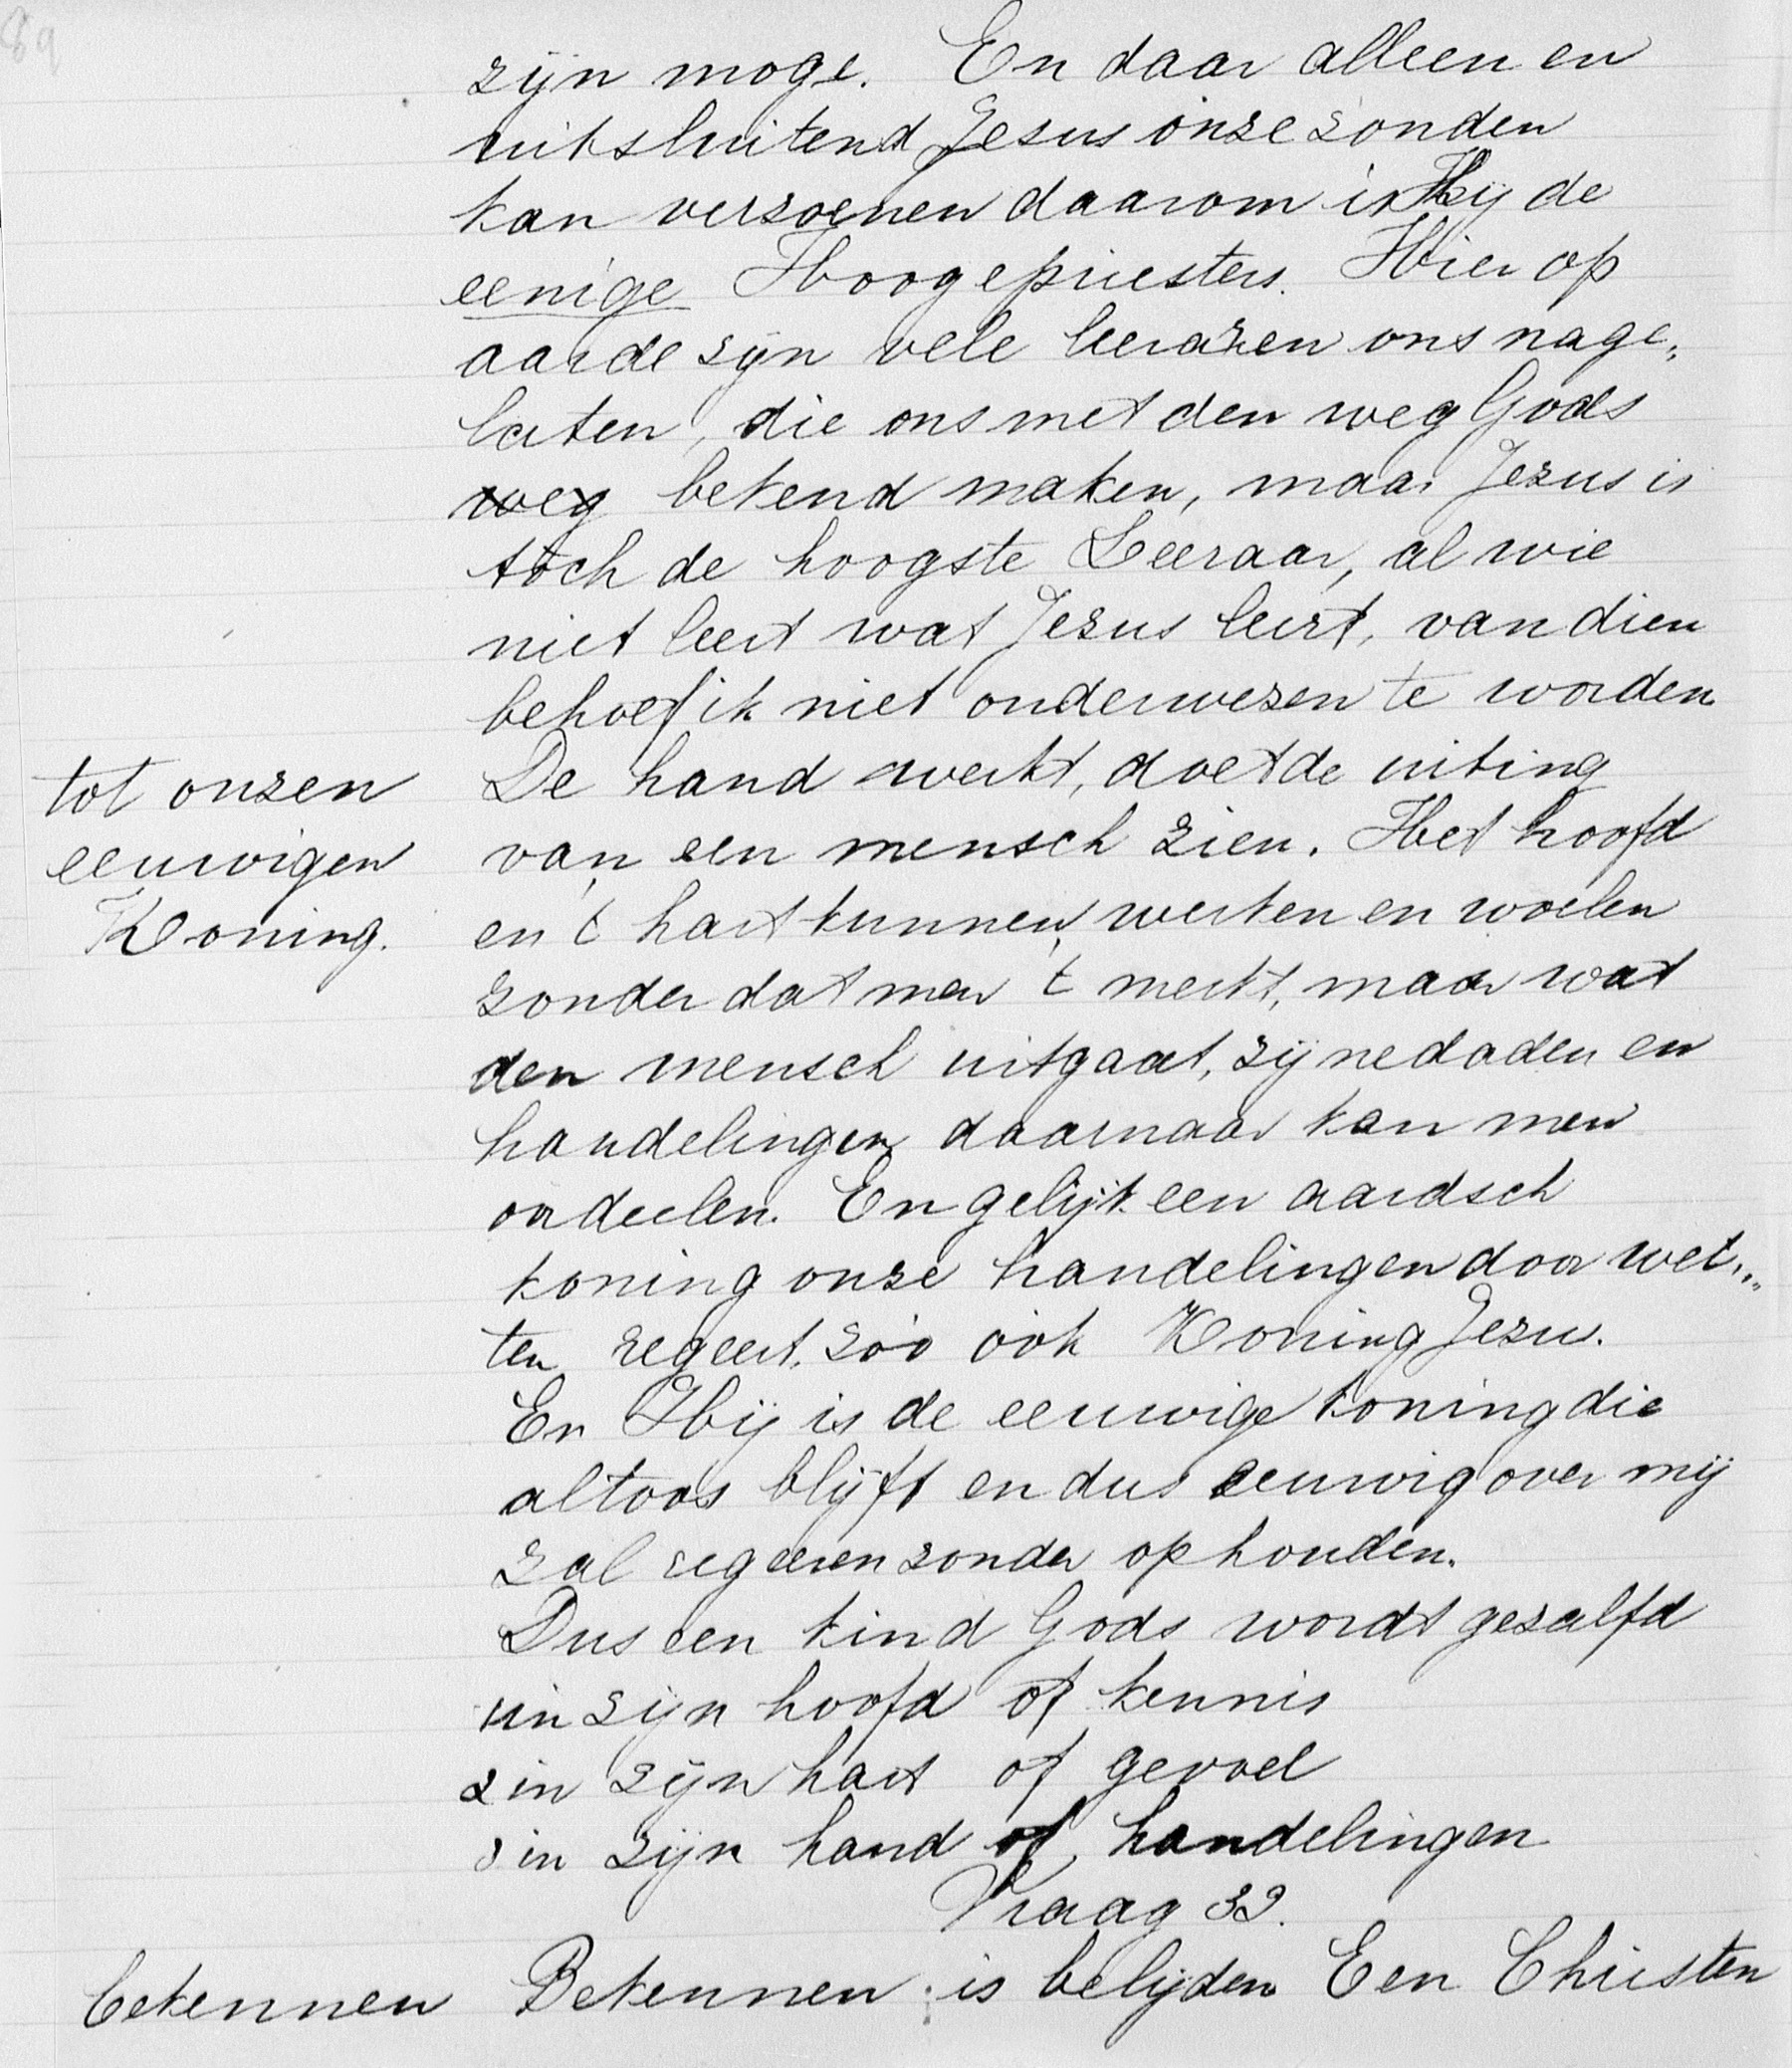 89
zijn moge. En daar alleen en
uitsluitend Jesus onze zonden
kan verzoenen daarom is Hij de
eenige Hoogepriesters. Hier op
aarde zijn vele leeraren ons nage„
laten, die ons met den weg Gods
weg bekend maken, maar Jezus is
toch de hoogste Leeraar, al wie
niet leert wat Jezus leert, van dien
behoef ik niet onderwezen te worden
tot onzen
eeuwigen
Koning.
De hand werkt, doet de uiting
van een mensch zien. Het hoofd
en 't hart kunnen werken en woelen
zonder dat men 't merkt, maar wat
den mensch uitgaat, zijne daden en
handelingen daarnaar kan men
oordeelen. En gelijk een aardsch
koning onze handelingen door wet„
ten regeert, zóó ook Koning Jezus.
En Hij is de eeuwige koning die
altoos blijft en dus eeuwig over mij
zal regeeren zonder ophouden.
Dus een kind Gods wordt gezalfd
1 in zijn hoofd of kennis
2 in zijn hart of gevoel
3 in zijn hand of handelingen
Vraag 32.
bekennen
Bekennen is belijden Een Christen